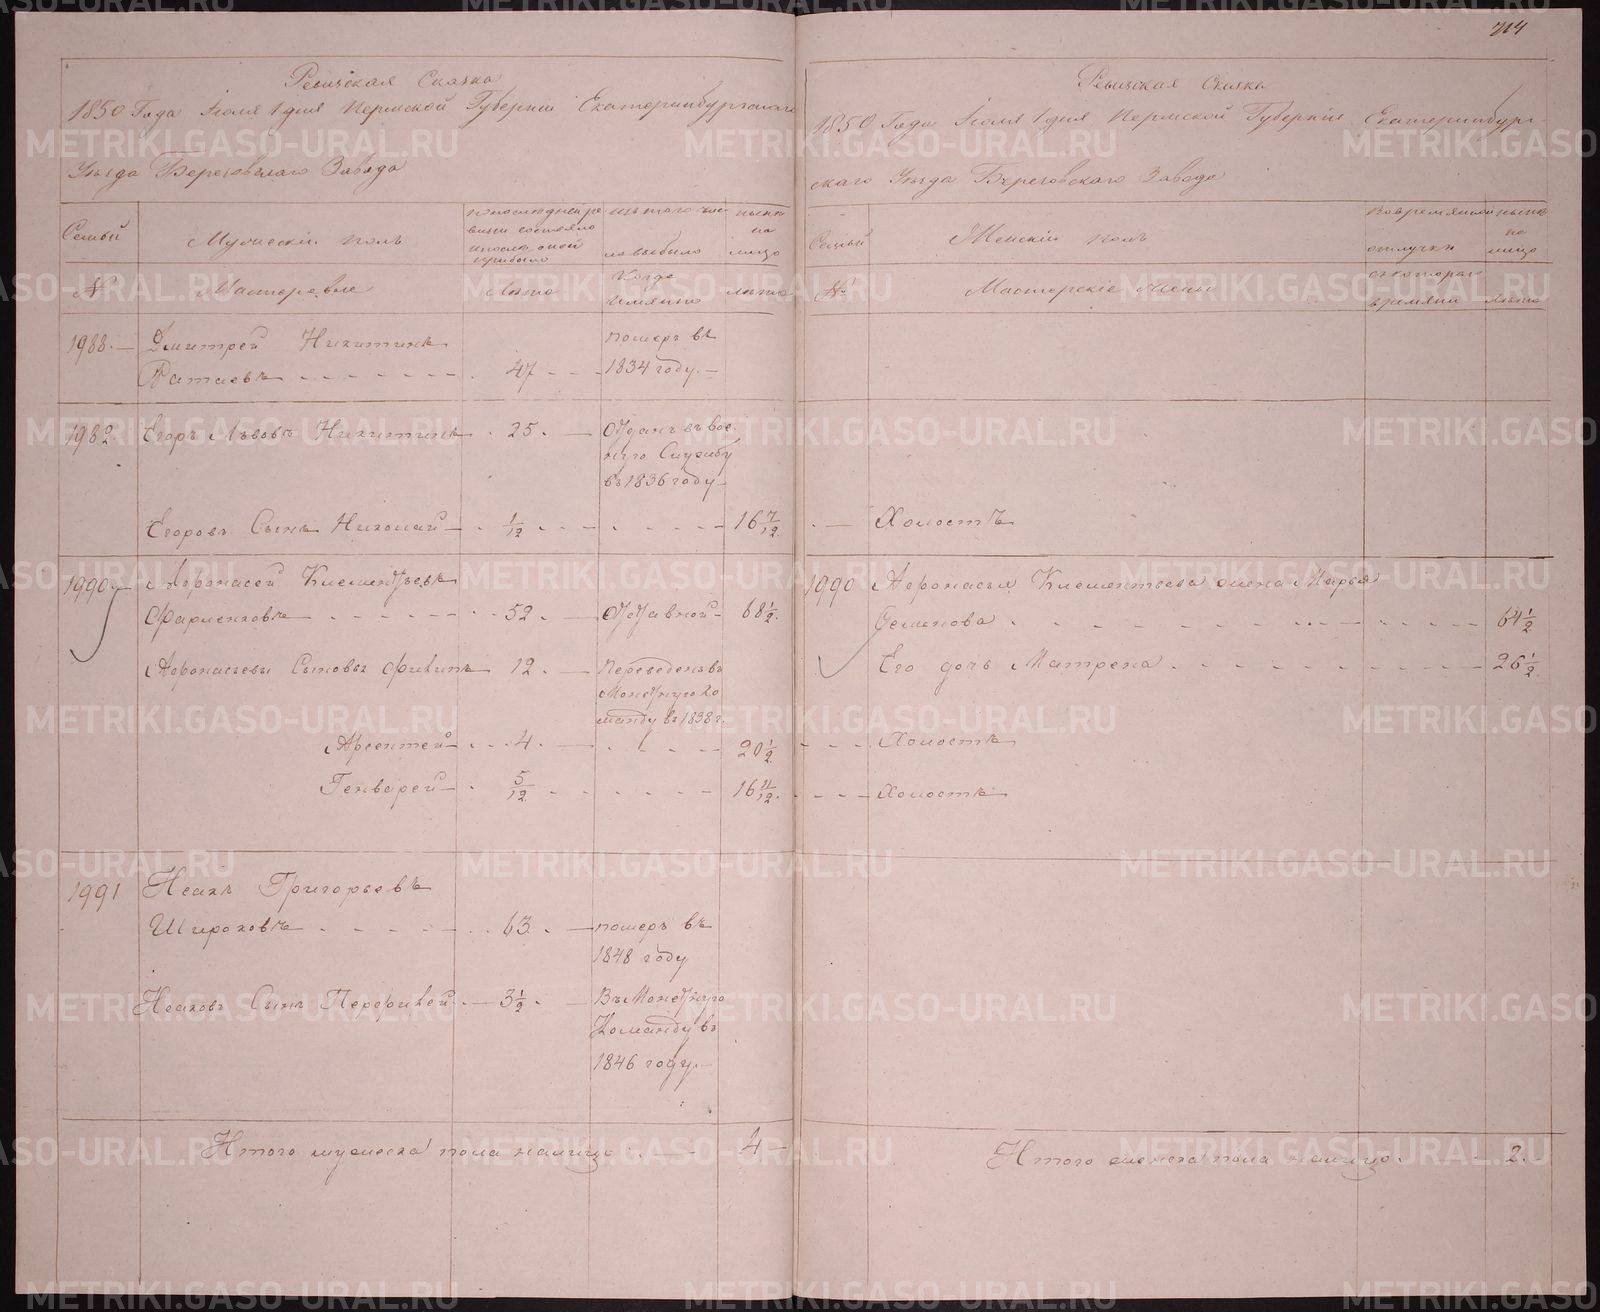 714
Ревижская Сказка
1850 Года Июля 1 дня Пермской Губернии Екатеринбургскаго
Уезда Березовскаго Завода
Семьи
Мужескiй полъ
по последней ре
визiи состояло
и после оной
прибыло
изъ того чис
ла выбыло
ныне
на
лицо
№
Мастеровые
Лета
Когда
Имянно
лета
1988.
Дмитрей Никитинъ
Ратаевъ
47
померъ въ
1834 году.
1982
Егоръ Львовъ Никитинъ
25.
Отданъ въ вое
ную Службу
въ 1836 году
Егоровъ Сынъ Николай
1/12
16 7/12
1990
Афонасей Клементьевъ
Фарленковъ
52
Отставной
68 1/2
Афонасьевы Сыновья Филипъ
12
Переведенъ въ
Монетную Ко
манду въ 1838 г.
Арсентей
4
20 1/2
Генварей
5/12
16 11/12
1991
Исакъ Григорьевъ
Широковъ
63
померъ въ
1848 году
Исаковъ Сынъ Перфилей
3 1/2
Въ Монетную
Команду въ
1846 году.
Итого мужеска пола налицо
4
Ревижская Сказка
1850 Года Июля 1 дня Пермской Губернии Екатеринбург-
скаго Уезда Березовскаго Завода
Семьи
Женскiй полъ
Во временной
отлучки
ныне
на
лицо
№
Мастерскiе Жены
съ котораго
времяни
Лета
Холостъ
1990
Афонасья Клементьева жена Марья
Семенова
64 1/2
Его дочь Матрена
26 1/2
Холостъ
Холостъ
Итого женска пола налицо
2.
METRIKI.GASO-URAL.RU